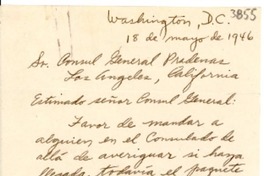 3855
Washington, D.C.
18 de mayo de 1946
Sr. Consul General Pradenas
Los Angeles, California
Estimado señor Consul General:
Favor de mandar a
alguien en el Consulado de
allá de averiguar si haya
llegado todavía el paquete